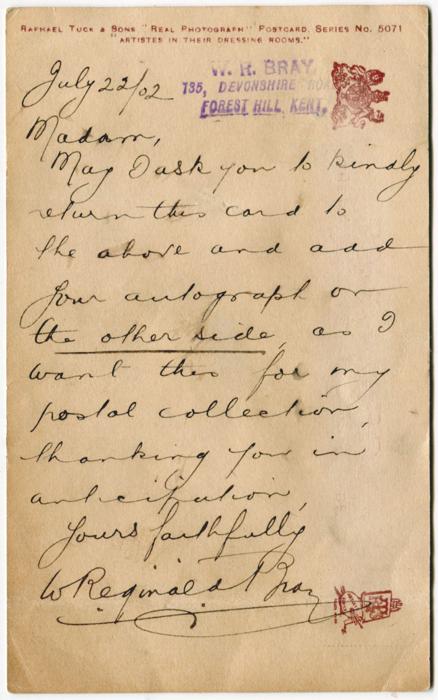 RAPHAEL TUCK & SONS "REAL PHOTOGRAPH" POSTCARD, SERIES NO. 5071
"ARTISTES IN THEIR DRESSING ROOMS."
W. R. BRAY,
135, DEVONSHIRE ROAD
FOREST HILL, KENT.
July 22/02
Madam,
May I ask you to kindly
return this card to
the above and add
your autograph on
the other side, as I
want this for my
postal collection,
thanking you in
anticipation,
Yours faithfully
W Reginald Bray